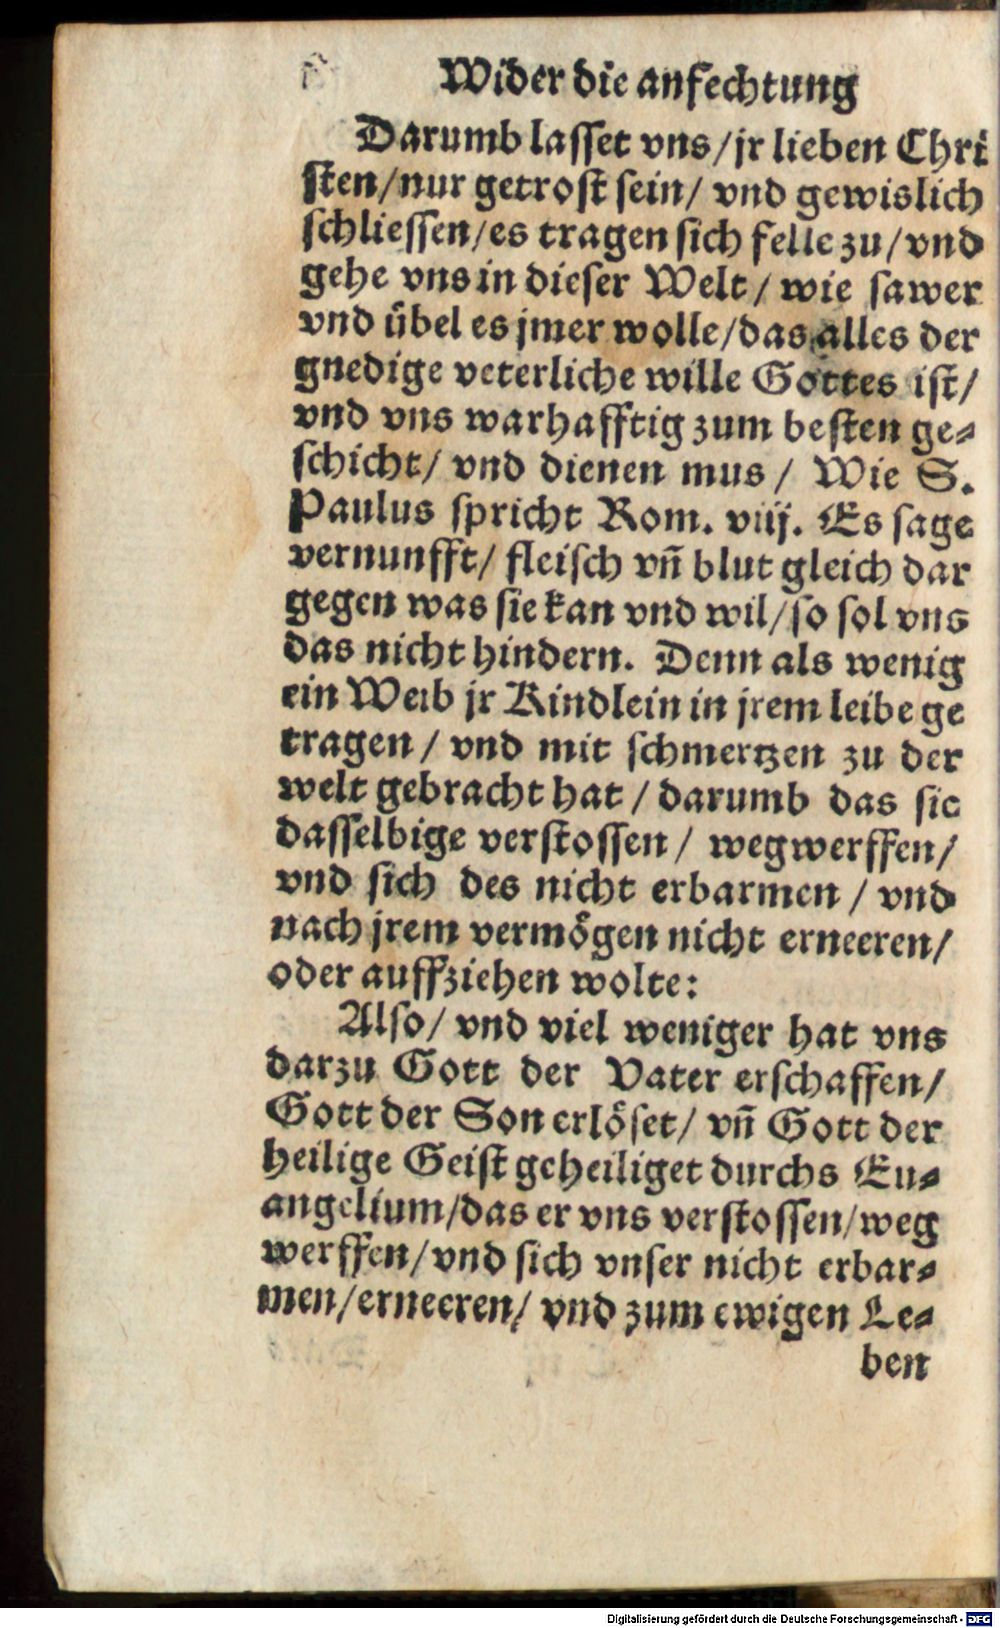 Wider die anfechtung
Darumb lasset vns/jr lieben Chri
sten/nur getrost sein/ vnd gewislich
schliessen/es tragen sich felle zu/vnd
gehe vns in dieser Welt/ wie sawer
vnd übel es jmer wolle/das alles der
gnedige veterliche wille Gottes ist/
vnd vns warhafftig zum besten ge-
schicht/ vnd dienen mus/ Wie S.
Paulus spricht Rom. viij. Es sage
vernunfft/ fleisch vn̄ blut gleich dar
gegen was sie kan vnd wil/so sol vns
das nicht hindern. Denn als wenig
ein Weib jr Kindlein in jrem leibe ge
tragen/ vnd mit schmertzen zu der
welt gebracht hat/ darumb das sie
dasselbige verstossen/ wegwerffen/
vnd sich des nicht erbarmen/ vnd
nach jrem vermögen nicht erneeren/
oder auffziehen wolte:
Also/ vnd viel weniger hat vns
darzu Gott der Vater erschaffen/
Gott der Son erlöset/ vn̄ Gott der
heilige Geist geheiliget durchs Eu-
angelium/das er vns verstossen/weg
werffen/vnd sich vnser nicht erbar-
men/erneeren/ vnd zum ewigen Le-
ben
Digitalisierung gefördert durch die Deutsche Forschungsgemeinschaft - DFG